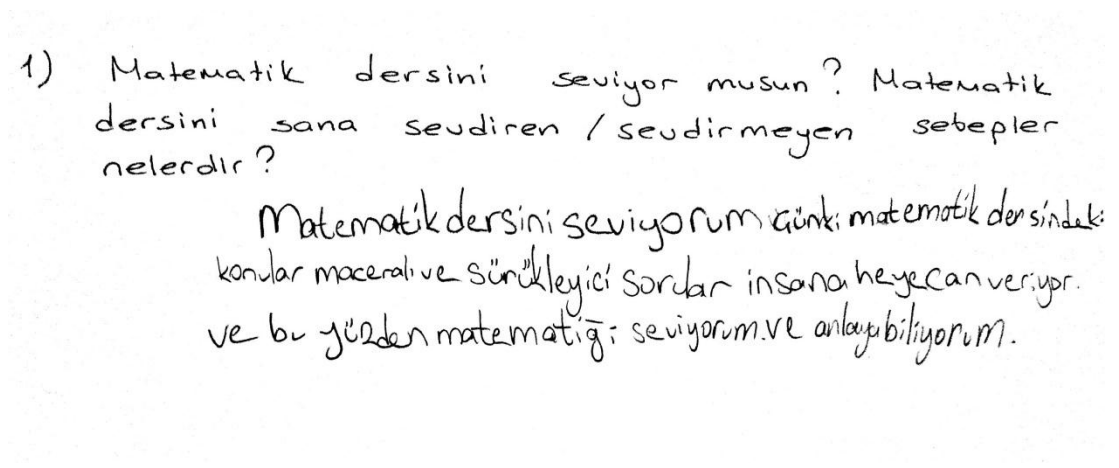 1) Matematik dersini seviyor musun? Matematik
dersini sana sevdiren / sevdirmeyen sebepler
nelerdir?
Matematik dersini seviyorum çünki matematik dersindeki
konular maceralı ve sürükleyici sorular insana heyecan veriyor.
ve bu yüzden matematiği seviyorum.ve anlayabiliyorum.